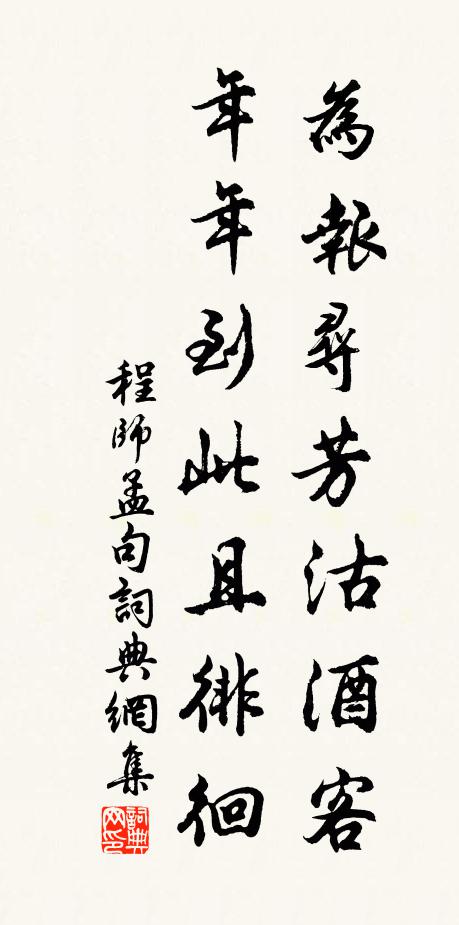 為報尋芳沽酒客
年年到此且徘徊
程師孟句詞典網集
詞典
网印